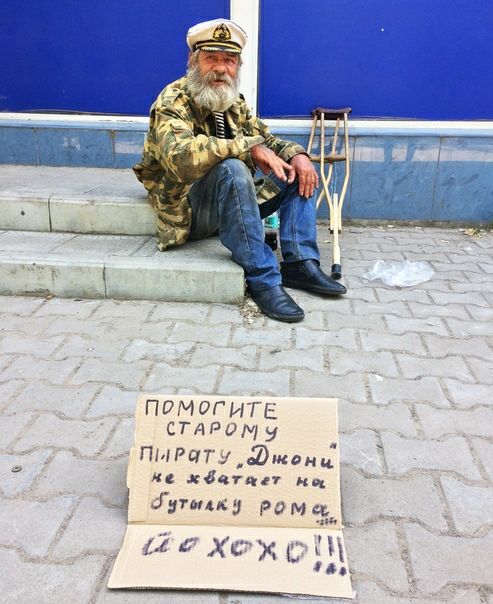 ПОМОГИТЕ
СТАРОМУ
ПИРАТУ „Джони"
не хватает на
бутылку рома
йо хохо!!!